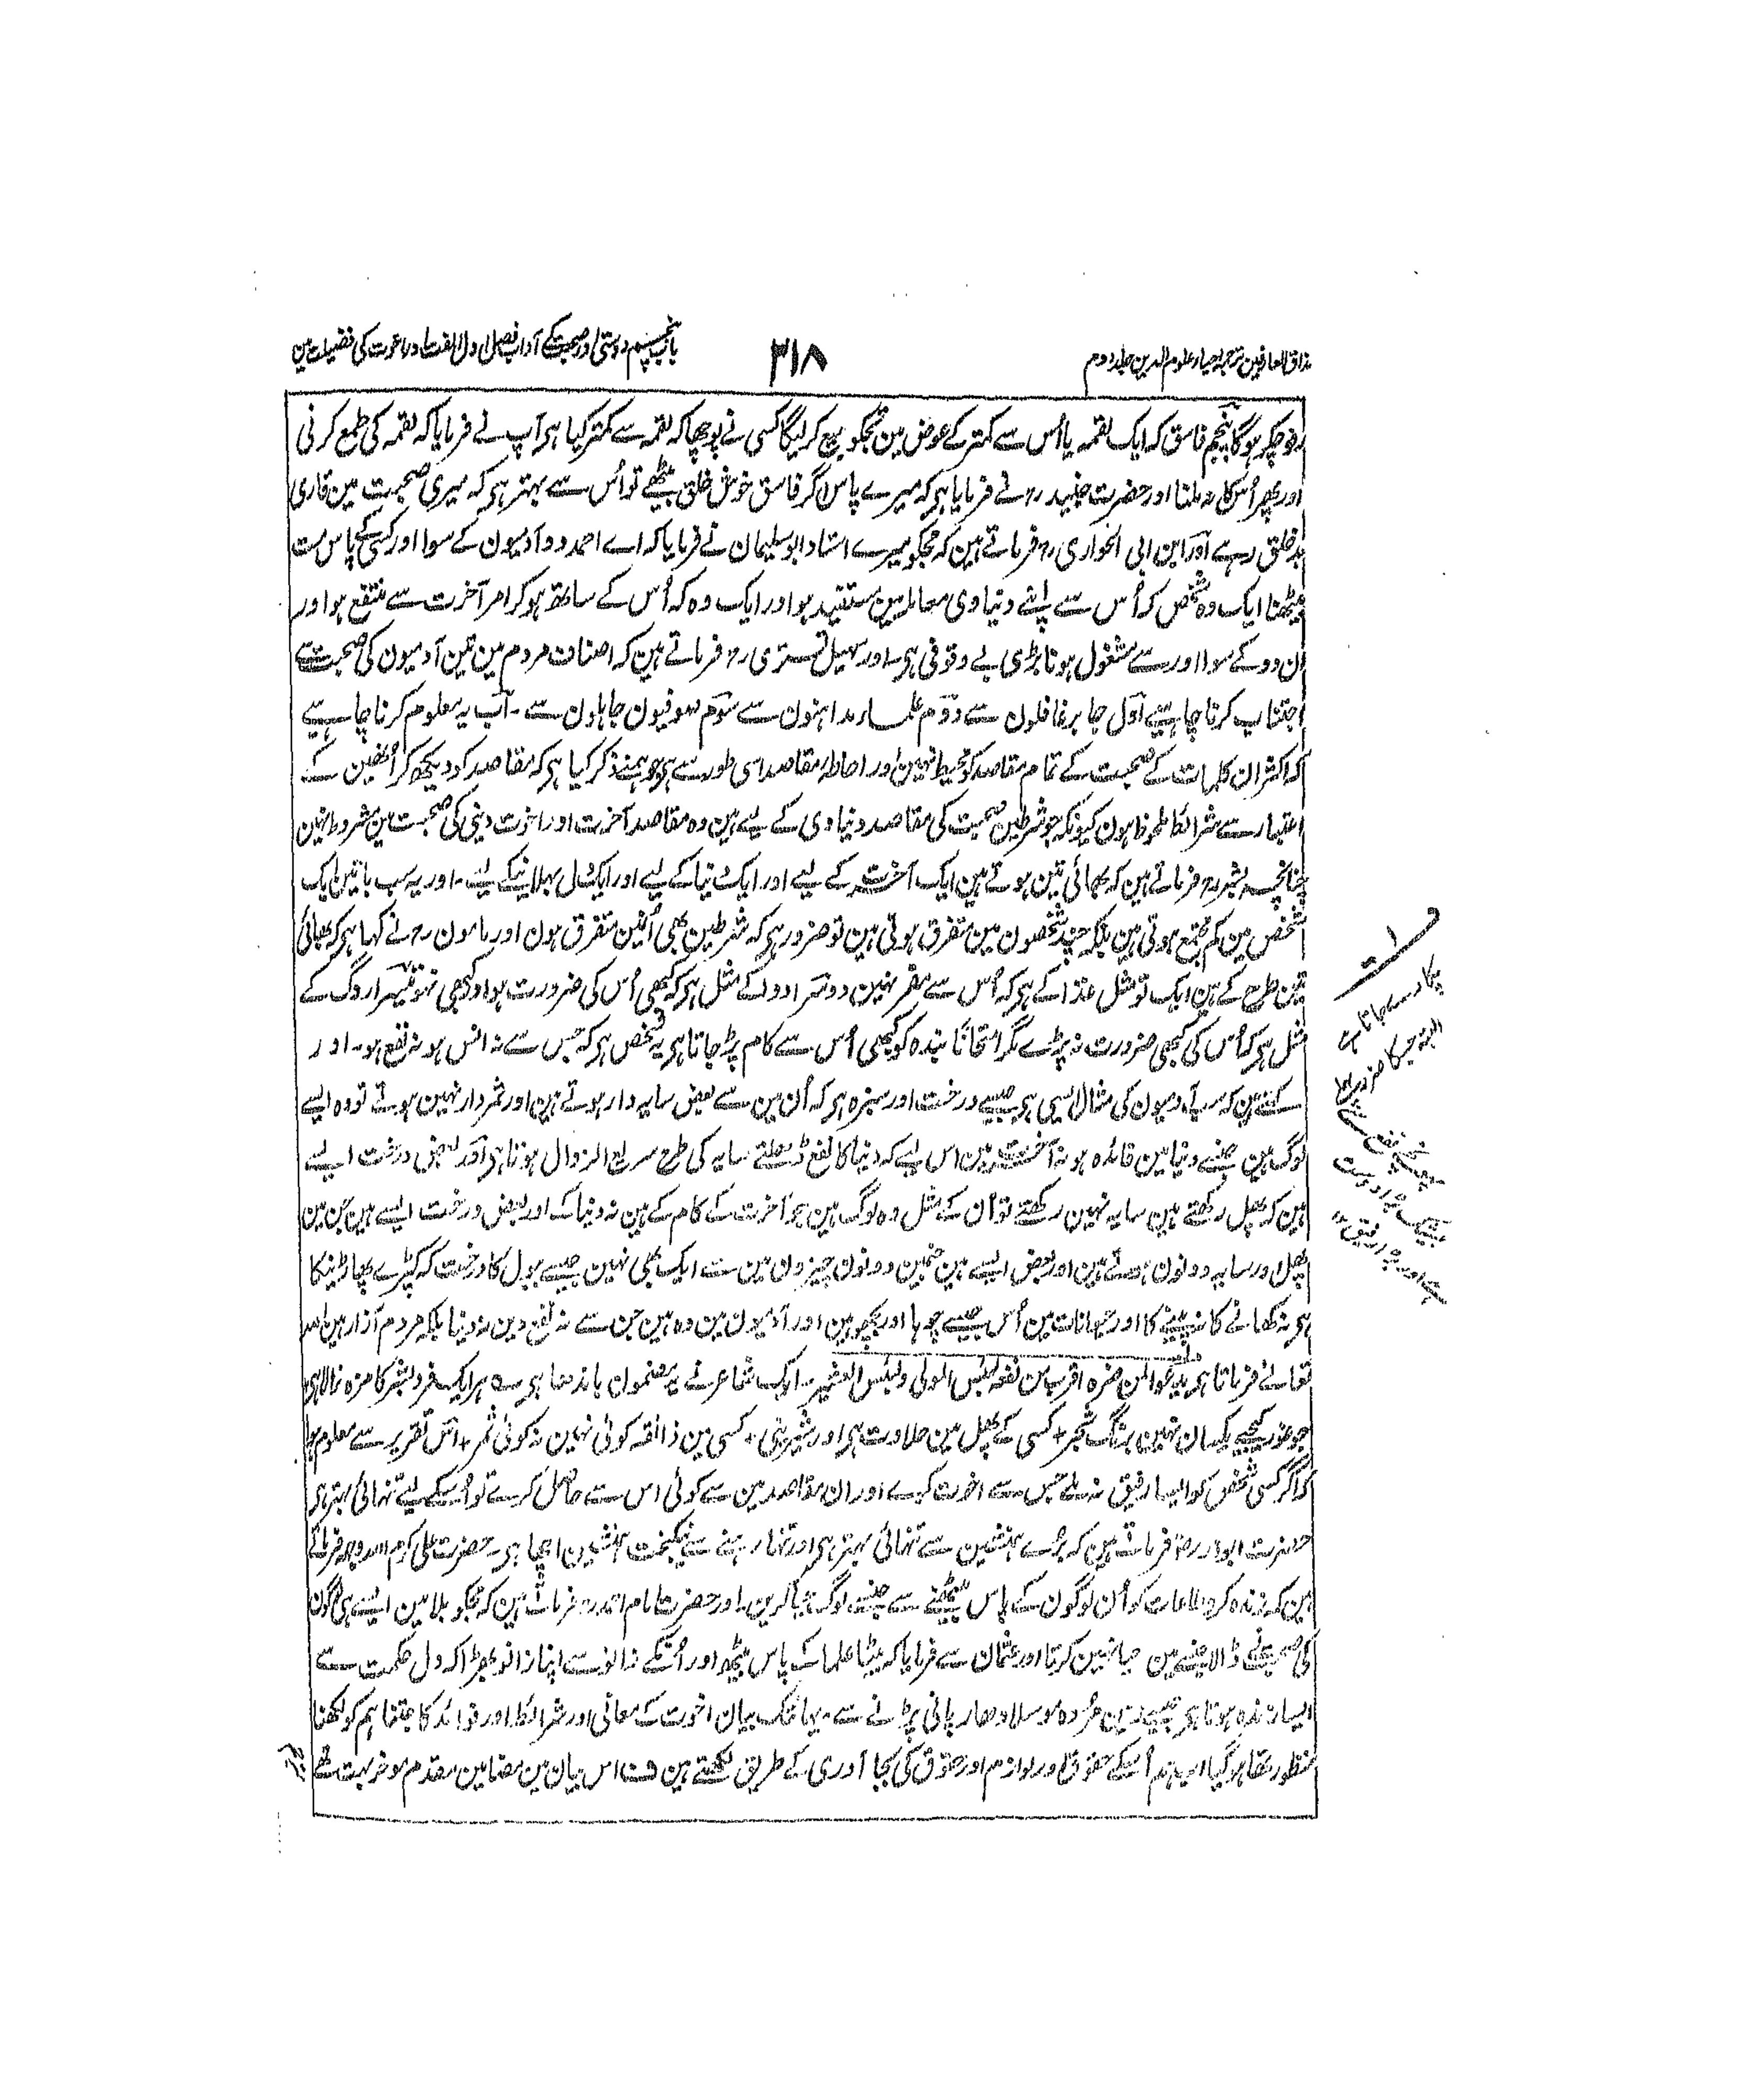 مذاق العارفین ترجمہ احیاء علوم الدین جلد دوم
۲۱۸
باب پنجم دوستی اور صحبت کے آداب فصل اول الفت اور اخوت کی فضیلت مین
روچکر ہوگا پنجم فاسق کہ ایک لقمہ یا اُس سے کمتر کے عوض مین تجکو بیع کر لیگا کسی نے پوچھا کہ لقمہ سے کمتر کیا ہی آپ نے فرمایا کہ لقمہ کی طمع کرنی
اور پھر اُسکا نہ ملنا اور حضرت جنید رہ نے فرمایا ہی کہ میرے پاس اگر فاسق خوش خلق بیٹھے تو اُس سے بہتر ہی کہ میری صحبت مین قاری
بدخلق رہے اور ابن ابی الحواری رہ فرماتے ہین کہ مجکو میرے استاد ابو سلیمان نے فرمایا کہ اے احمد دو آدمیون کے سوا اور کسی کے پاس مت
بیٹھنا ایک وہ شخص کہ اُس سے اپنے دنیاوی معاملہ مین مستفید ہو اور ایک وہ کہ اُس کے ساتھ ہو کر امر آخرت سے منتفع ہو اور
ان دو کے سوا اور سے مشغول ہونا بڑی بے وقوفی ہی اور سہیل تستری رہ فرماتے ہین کہ اصناف مردم مین تین آدمیون کی صحبت سے
اجتناب کرنا چاہیے اول جابر غافلون سے دوم علماء مداہنون سے سوم صوفیون جاہلون سے۔ اب یہ معلوم کرنا چاہیے
کہ اکثر ان کلمات کے صحبت کے تمام مقاصد کو محیط نہین اور احاطہ مقاصد اسی طور سے ہی جو ہمنے ذکر کیا ہی کہ مقاصد کو دیکھ کر اُنھین کے
اعتبار سے شرائط ملحوظ ہون کیونکہ جو شرطین صحبت کی مقاصد دنیاوی کے لیے ہین وہ مقاصد آخرت اور اخوت دینی کی صحبت مین مشروط نہین
چنانچہ بشر رہ فرماتے ہین کہ بھائی تین ہوتے ہین ایک آخرت کے لیے اور ایک دنیا کے لیے اور ایک دل بہلانیکے لیے۔ اور یہ سب باتین ایک
شخص مین کم مجتمع ہوتی ہین بلکہ چند شخصون مین متفرق ہوتی ہین تو ضرور ہی کہ شرطین بھی اُنمین متفرق ہون اور مامون رہ نے کہا ہی کہ بھائی
تین طرح کے ہین ایک تو مثل غذا کے ہی کہ اُس سے مفر نہین دوسرا دوا کے مثل ہی کہ کبھی اُس کی ضرورت ہو اور کبھی نہو تیسرا روگ کے
مثل ہی کہ اُس کی کبھی ضرورت نہ پڑے مگر امتحاناً بندہ کو کبھی اُس سے کام پڑ جاتا ہی یہ شخص ہی کہ جس سے نہ انس ہو نہ نفع ہو۔ اور
کہتے ہین کہ سب آدمیون کی مثال ایسی ہی جیسے درخت اور سبزہ ہی کہ اُن مین سے بعض سایہ دار ہوتے ہین اور ثمردار نہین ہوتے تو وہ ایسے
لوگ ہین جنسے دنیا مین فائدہ ہو نہ آخرت مین اس لیے کہ دنیا کا نفع ڈھلتے سایہ کی طرح سریع الزوال ہوتا ہی اور بعض درخت ایسے
ہین کہ پھل رکھتے ہین سایہ نہین رکھتے تو اُن کے مثل وہ لوگ ہین جو آخرت کے کام کے ہین نہ دنیا کے اور بعض درخت ایسے ہین جن مین
پھل اور سایہ دونون ہوتے ہین اور بعض ایسے ہین جنمین دونون چیزون مین سے ایک بھی نہین جیسے ببول کا درخت کہ کپڑے پھاڑنیکا
ہی نہ کھانے کا نہ پینے کا اور حیوانات مین اُس جیسے چوہا اور بچھو ہین اور آدمیون مین وہ ہین جن سے نہ نفع دین نہ دنیا بلکہ مردم آزار ہین اللہ
تعالے فرماتا ہی یدعوا لمن ضرہ اقرب من نفعہ لبئس المولی ولبئس العشیر۔ ایک شاعر نے یہ مضمون باندھا ہی ہر ایک فرد بشر کا مزہ نرالا ہی
جو غور کیجیے یکسان نہین برنگ شجر + کسی کے پھل مین حلاوت ہی اور شیرینی + کسی مین ذائقہ کوئی نہین نہ کوئی ثمر + اس تقریر سے معلوم ہوا
کہ اگر کسی شخص کو ایسا رفیق نہ ملے جس سے اخوت کرے اور ان مقاصد مین سے کوئی اس سے حاصل کرے تو اُسکے لیے تنہائی بہتر ہی
حضرت ابوذر رضہ فرماتے ہین کہ بُرے ہمنشین سے تنہائی بہتر ہی اور تنہا رہنے سے نیکبخت ہمنشین اچھا ہی۔ حضرت علی کرم اللہ وجہہ فرماتے
ہین کہ زندہ کرو طاعات کو اُن لوگون کے پاس بیٹھنے سے جنسے لوگ حیا کرین۔ اور حضرت امام احمد رہ فرماتے ہین کہ مجکو بلا مین ایسے ہی لوگون
کی صحبت نے ڈالا جنسے مین حیا نہین کرتا اور لقمان نے فرمایا کہ بیٹا علما کے پاس بیٹھ اور اُنکے زانو سے اپنا زانو بھڑا کہ دل حکمت سے
ایسا زندہ ہوتا ہی جیسے زمین مردہ موسلا دھار پانی پڑنے سے۔ یہانتک بیان اخوت کے معانی اور شرائط اور فوائد کا جتنا ہم کو لکھنا
منظور تھا ہو گیا اب ہم اُسکے حقوق اور لوازم اور حقوق کی بجا آوری کے طریق لکھتے ہین ف اس بیان مین مضامین مقدم موخر بہت تھے
ف۱
پکارے جاتا ہے
البتہ جسکا ضرر پہلے
پہنچے نفع سے
بیشک برا دوست
ہے اور برا رفیق ۱۲